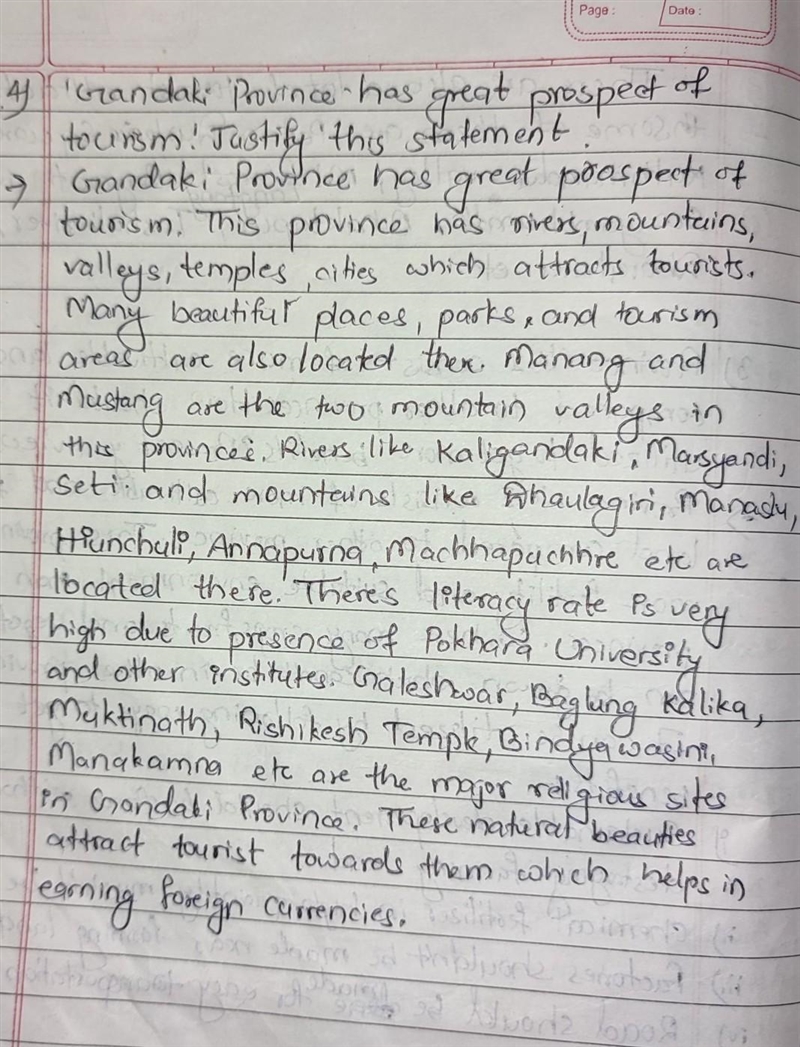 Page : Date :
4) 'Gandaki Province has great prospect of
tourism! Justify this statement.
→ Gandaki Province has great prospect of
tourism. This province has rivers, mountains,
valleys, temples, cities which attracts tourists.
Many beautiful places, parks, and tourism
areas are also located there. Manang and
Mustang are the two mountain valleys in
this province. Rivers like Kaligandaki, Marsyandi,
Seti and mountains like Dhaulagiri, Manaslu,
Hiunchuli, Annapurna, Machhapuchhre etc are
located there. There's literacy rate is very
high due to presence of Pokhara University
and other institutes. Galeshwar, Baglung Kalika,
Muktinath, Rishikesh Temple, Bindyawasini,
Manakamna etc are the major religious sites
in Gandaki Province. These natural beauties
attract tourist towards them which helps in
earning foreign currencies.